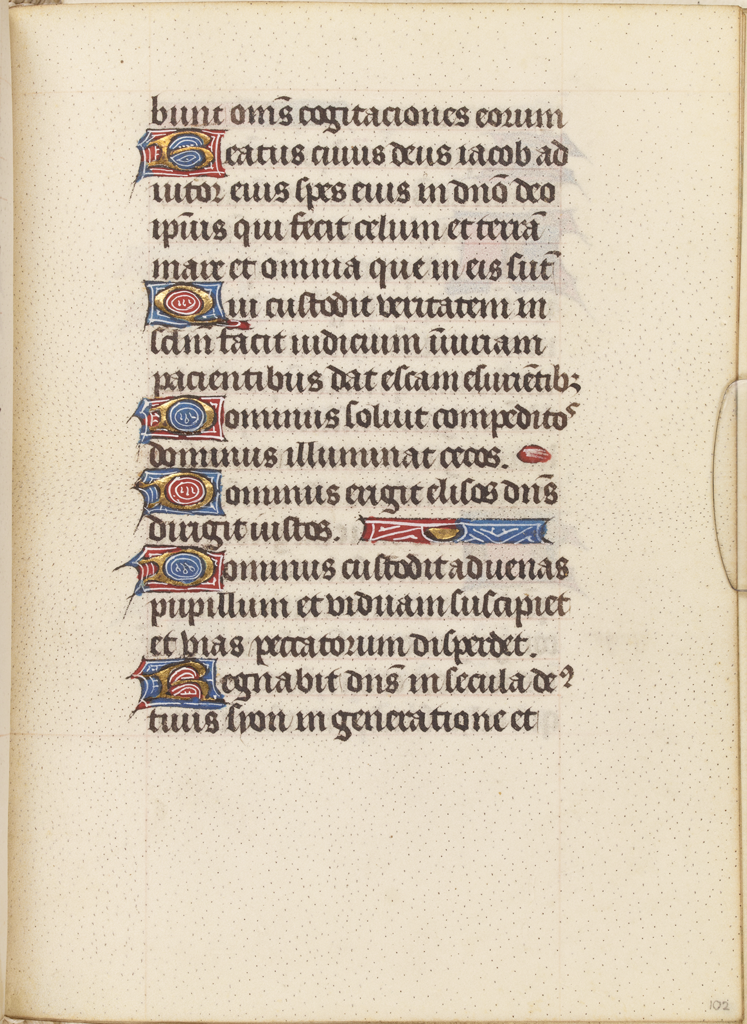 bunt om̄s cogitaciones eorum
Beatus cuius deus iacob ad
iutor eius spes eius in dn̄o deo
ip̄ius qui fecit celum et terrā
mare et omnia que in eis sūt
Qui custodit veritatem in
sc̄lm facit iudicium īiuriam
pacientibus dat escam esuriētibꝫ
Dominus soluit compeditos
dominus illuminat cecos.
Dominus erigit elisos dn̄s
dirigit iustos.
Dominus custodit aduenas
pupillum et viduam suscipiet
et vias peccatorum disperdet.
Regnabit dn̄s in secula deꝰ
tuus syon in generatione et
102